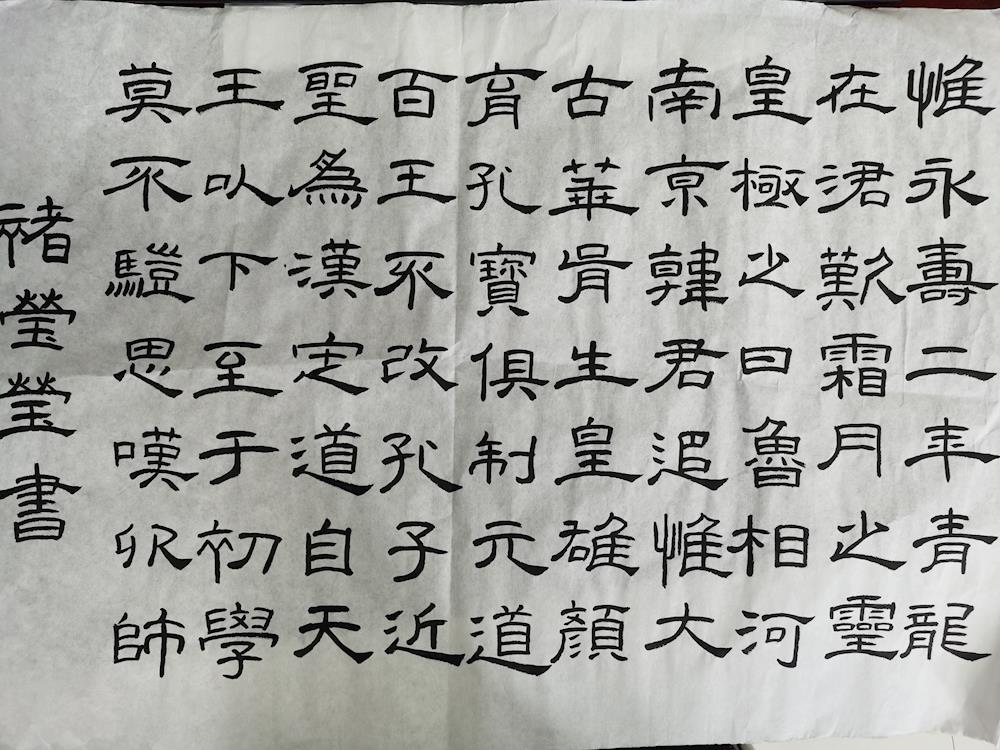 惟永壽二年青龍
在涒歎霜月之靈
皇極之日魯相河
南京韓君追惟大
古華胥生皇雄顏
育孔寶俱制元道
百王不改孔子近
聖為漢定道自天
王以下至于初學
莫不驥思嘆卬師
褚瑩瑩書